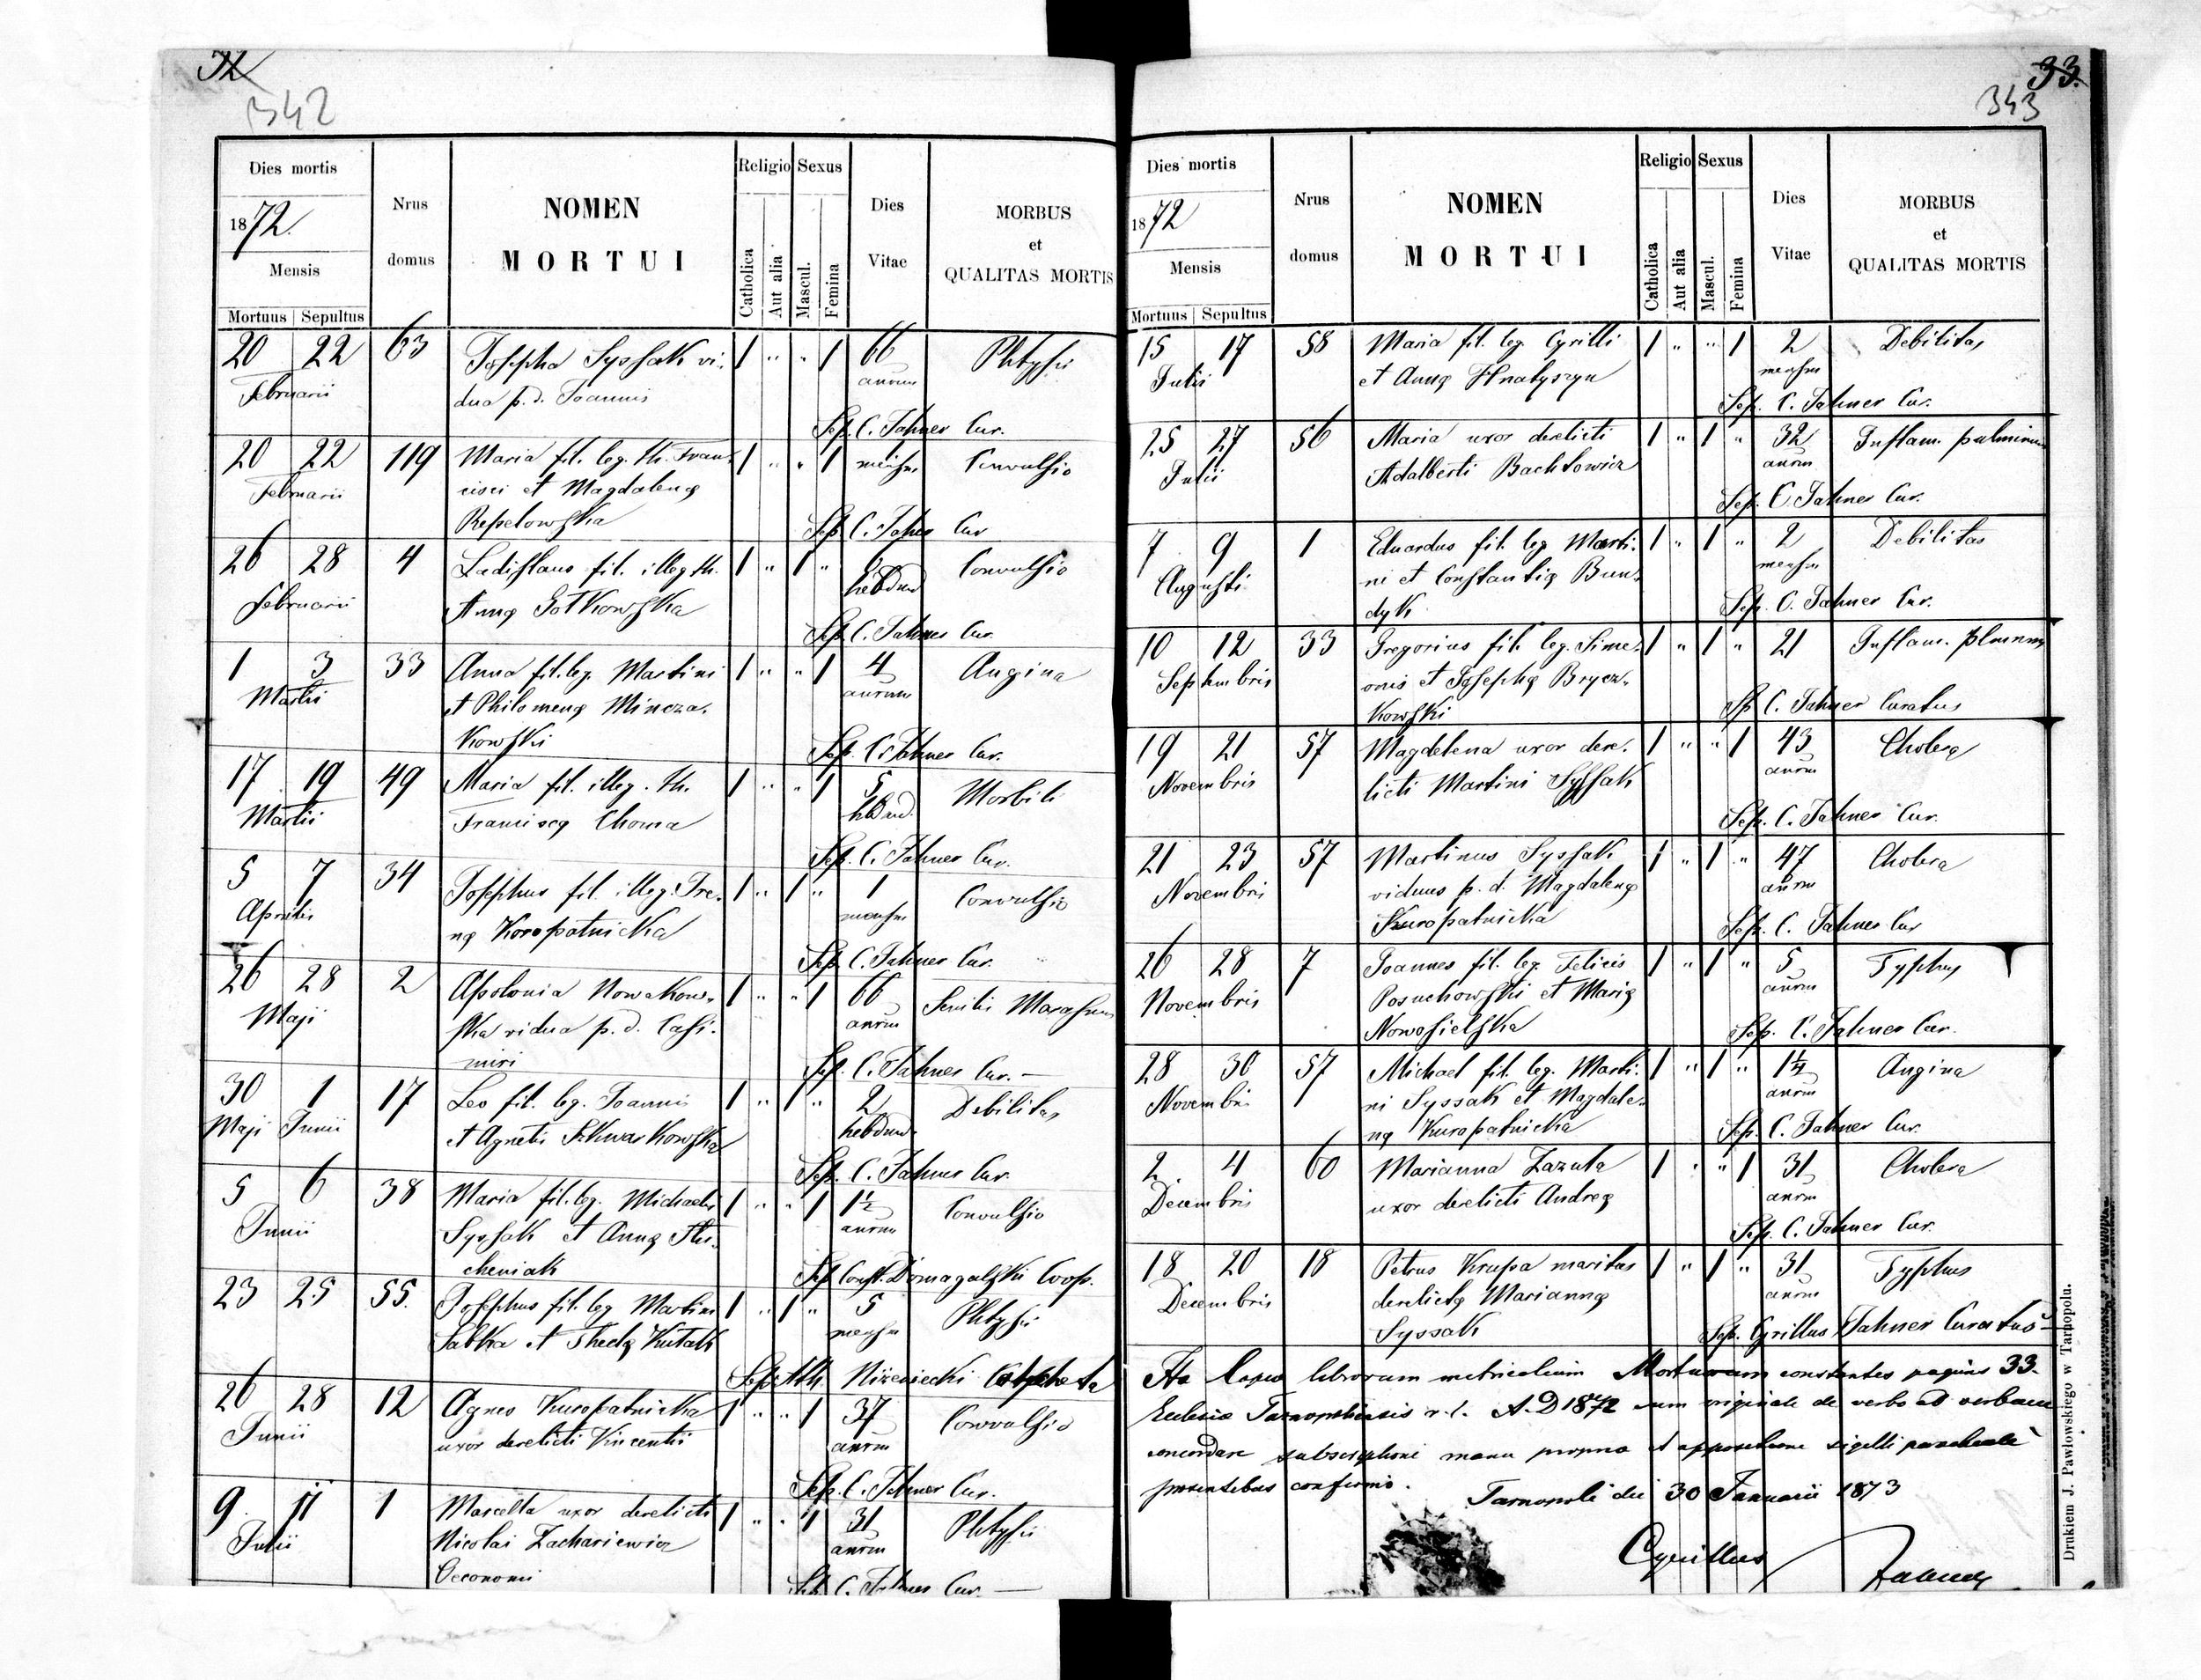 32
342
Dies mortis
1872.
Mensis
Mortuus Sepultus
Nrus
domus
NOMEN
MORTUI
Religio
Catholica
Aut alia
Sexus
Mascul.
Femina
Dies
Vitae
MORBUS
et
QUALITAS MORTIS
20 22 63 Josepha Syssak vi- 1 " " 1 66 Phtysis
Februarii dua p. d. Joannis annor
Sep. C. Jahner Cur.
20 22 119 Maria fil. leg. th. Fran- 1 " " 1 mensis Convulsio
Februarii cisci et Magdalenę
Repelowska
Sep. C. Jahner Cur
26 28 4 Ladislaus fil. illeg th. 1 " 1 " Convulsio
Februarii Annę Gotkowska hebdom
Sep. C. Jahner Cur.
1 3 33 Anna fil. leg. Martini 1 " " 1 4 Angina
Martii et Philomenę Mincza- annorum
kowski
Sep. C. Jahner Cur.
17 19 49 Maria fil. illeg. th. 1 " " 1 5 Morbili
Martii Franciscę Choma hebd.
Sep. C. Jahner Cur.
5 7 34 Josephus fil. illeg. Ire- 1 " 1 " 1 Convulsio
Aprilis nę Koropatnicka mensis
Sep. C. Jahner Cur.
26 28 2 Apolonia Nowakow- 1 " " 1 66 Senilis Marasmus
Maji ska vidua p. d. Casi- annor
miri
Sep. C. Jahner Cur. —
30 1 17 Leo fil. leg. Joannis 1 " 1 " 2 Debilitas
Maji Junii et Agnetis Szkwarkowska hebdom.
Sep. C. Jahner Cur.
5 6 38 Maria fil. leg. Michaelis 1 " " 1 1½ Convulsio
Junii Syssak et Annę annor
cheniak
Sep. Const. Domagalski Coop.
23 25 55. Josephus fil. leg Martini 1 " 1 " 5 Phtysis
Sabka et Theclę Kutak mensis
Sep. Ath. Nizeniecki
26 28 12 Agnes Kuropatnicka 1 " " 1 37 Convulsio
Junii uxor derelicti Vincentii annor
Sep. C. Jahner Cur.
9 11 1 Marcella uxor derelicti 1 " " 1 31 Phtysis
Julii Nicolai Zachariewicz annor
Oeconomi
Sep. C. Jahner Cur. —
33.
343
Dies mortis
1872
Mensis
Mortuus Sepultus
Nrus
domus
NOMEN
MORTUI
Religio
Catholica
Aut alia
Sexus
Mascul.
Femina
Dies
Vitae
MORBUS
et
QUALITAS MORTIS
15 17 58 Maria fil. leg. Cyrilli 1 " " 1 2 Debilitas
Julii et Annę Hnatyszyn mensis
Sep. C. Jahner Cur.
25 27 56 Maria uxor derelicti 1 " 1 " 32 Inflam. pulminum
Julii Adalberti Bachtowicz annor
Sep. C Jahner Cur.
7 9 1 Eduardus fil. leg Marti- 1 " 1 " 2 Debilitas
Augusti ni et Constantię Bun- mensis
dyk
Sep. C. Jahner Cur.
10 12 33 Gregorius fil. leg. Sime- 1 " 1 " 21 Inflam.
Septembris onis et Josephę Brycz-
kowski
Sep C. Jahner Curatus
19 21 57 Magdelena uxor dere- 1 " " 1 43 Cholera
Novembris licti Martini Syssak annor
Sep. C. Jahner Cur.
21 23 57 Martinus Syssak 1 " 1 " 47 Cholera
Novembris viduus p. d. Magdalenę annor
Kuropatnicka
Sep. C. Jahner Cur
26 28 7 Joannes fil. leg. Felicis 1 " 1 " 5 Typhus
Novembris Posuchowski et Marię annor
Nowosielska
Sep. C. Jahner Cur.
28 30 57 Michael fil. leg. Marti- 1 " 1 " 1¼ Angina
Novembris ni Syssak et Magdale- annor
nę Kuropatnicka
Sep. C. Jahner Cur.
2. 4 60 Marianna Zazula 1 " " 1 31 Cholera
Decembris uxor derelicti Andreę annor
Sep. C. Jahner Cur.
18 20 18 Petrus Krupa maritus 1 " 1 " 31 Typhus
Decembris derelictę Mariannę annor
Syssak
Sep. Cyrillus Jahner Curatus
Ita librorum metricalium Mortuorum constantes paginis 33.
Ecclesiæ Tarnopoliensis r. l. A. D 1872 cum originale de verbo ad verbum
concordare subscriptione manu propria et appositione sigilli parochialis
præsentibus confirmo.
Tarnopoli die 30 Januarii 1873
Cyrillus Jahner
Drukiem J. Pawłowskiego w Tarnopolu.